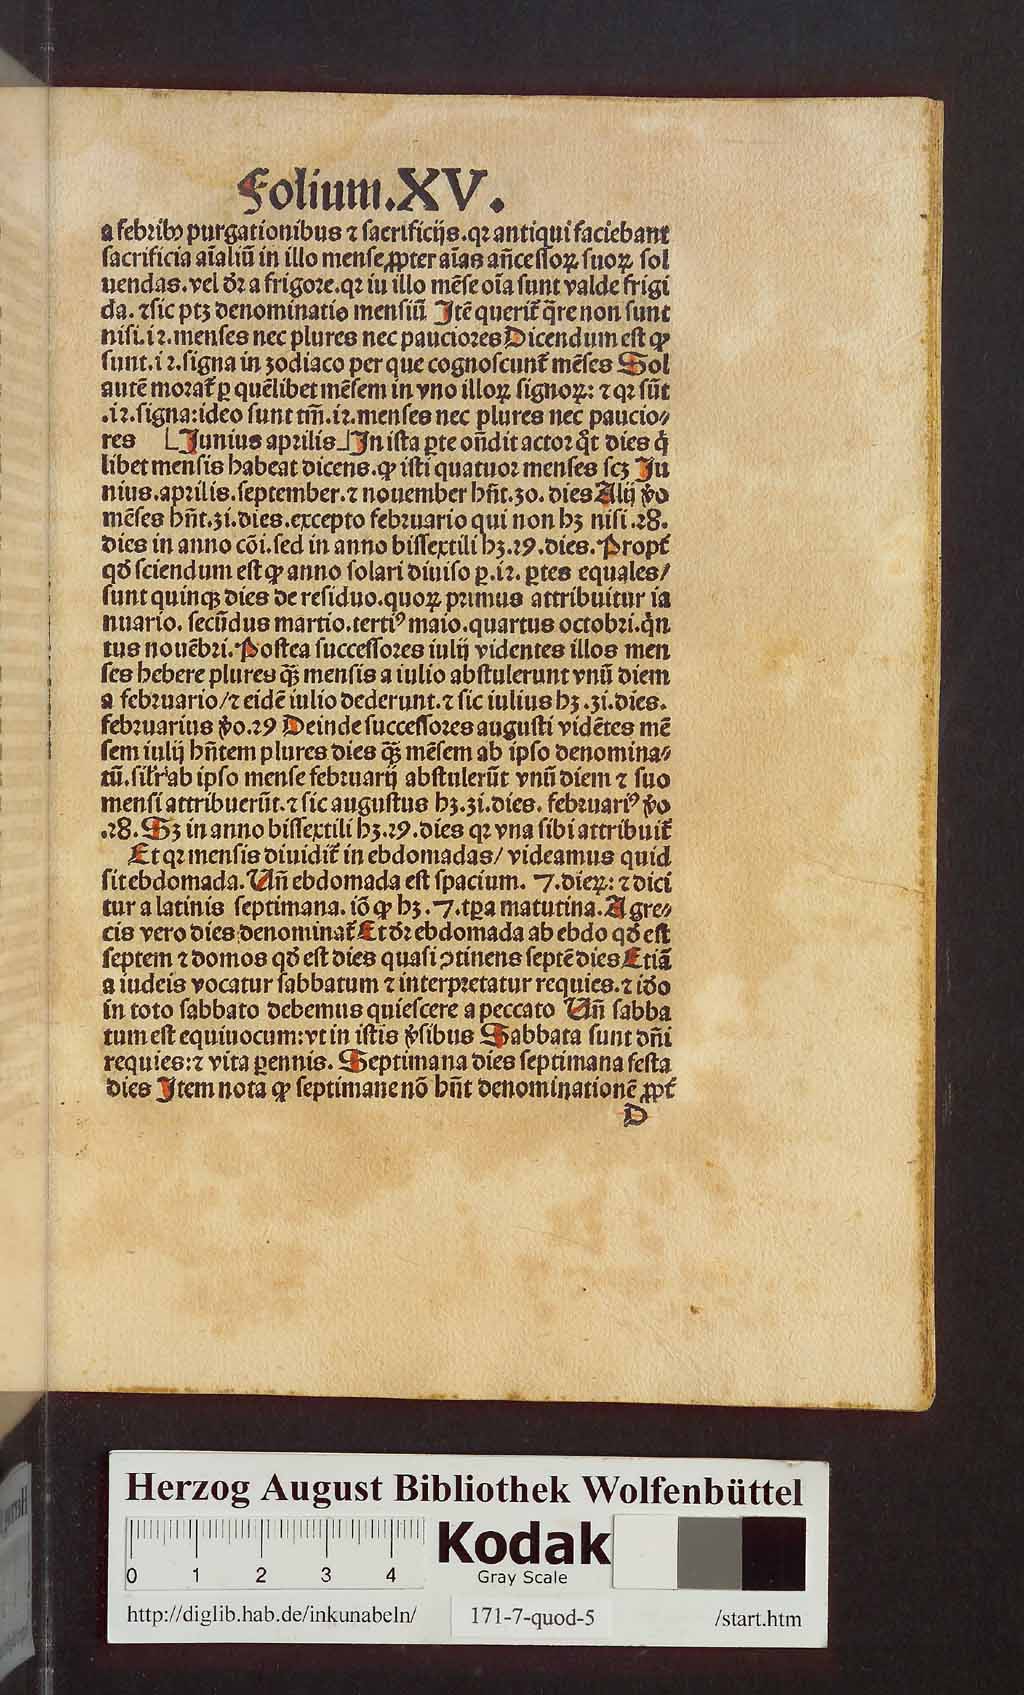 Folium.XV.
a febribꝰ purgationibus ⁊ sacrificijs.qꝛ antiqui faciebant
sacrificia aīaliū in illo mense ꝓpter aīas añcessoꝝ suoꝝ sol
uendas.vel dꝛ a frigore.qꝛ iu illo mēse oīa sunt valde frigi
da. ⁊sic ptꝫ denominatio mensiū Jtē querit̄ q̄re non sunt
nisi.12.menses nec plures nec pauciores Dicendum est ꝙ
sunt.12.signa in zodiaco per que cognoscunt̄ mēses Sol
autē morat̄ ꝑ quēlibet mēsem in vno illoꝝ signoꝝ: ⁊ qꝛ sūt
.12.signa:ideo sunt tm̄.12.menses nec plures nec paucio⸗
res Junius aprilis Jn ista ꝑte oñdit actor qͦt dies q̄
libet mensis habeat dicens.ꝙ isti quatuor menses scꝫ Ju
nius.aprilis.september.⁊ nouember hñt.30.dies Alij v̄o
mēses hñt.31.dies.excepto februario qui non hꝫ nisi .28.
dies in anno cōi.sed in anno bissextili hꝫ.29.dies.Propt̄
qd̄ sciendum est ꝙ anno solari diuiso ꝑ.12. ꝑtes equales/
sunt quinqꝫ dies de residuo.quoꝝ primus attribuitur ia
nuario. secūdus martio.tertiꝰ maio.quartus octobri.qͥn
tus nouēbri.Postea successores iulij videntes illos men
ses hebere plures qꝫ̄ mensis a iulio abstulerunt vnū diem
a februario/⁊ eidē iulio dederunt.⁊ sic iulius hꝫ.31.dies.
februarius v̄o.29 Deinde successores augusti vidētes mē
sem iulij hñtem plures dies qꝫ̄ mēsem ab ipso denomina⸗
tū.sil̄r ab ipso mense februarij abstulerūt vnū diem ⁊ suo
mensi attribuerūt.⁊ sic augustus hꝫ.31.dies. februariꝰ v̄o
.28.Sꝫ in anno bissextili hꝫ.29.dies qꝛ vna sibi attribuit̄
Et qꝛ mensis diuidit̄ in ebdomadas/ videamus quid
sit ebdomada.Uñ ebdomada est spacium. 7.dieꝝ: ⁊ dici
tur a latinis septimana. iō ꝙ hꝫ.7.tꝑa matutina.A gre⸗
cis vero dies denominat̄ Et dꝛ ebdomada ab ebdo qd̄ est
septem ⁊ domos qd̄ est dies quasi ↄtinens septē dies Etiā
a iudeis vocatur sabbatum ⁊ interpretatur requies.⁊ id̄o
in toto sabbato debemus quiescere a peccato Uñ sabba
tum est equiuocum:vt in istis v̄sibus Sabbata sunt dñi
requies:⁊ vita ꝑennis. Septimana dies septimana festa
dies Jtem nota ꝙ septimane nō hñt denominationē ꝓpt̄
D
Herzog August Bibliothek Wolfenbüttel
0 1 2 3 4
Kodak
Gray Scale
http://diglib.hab.de/inkunabeln/ 171-7-quod-5 /start.htm